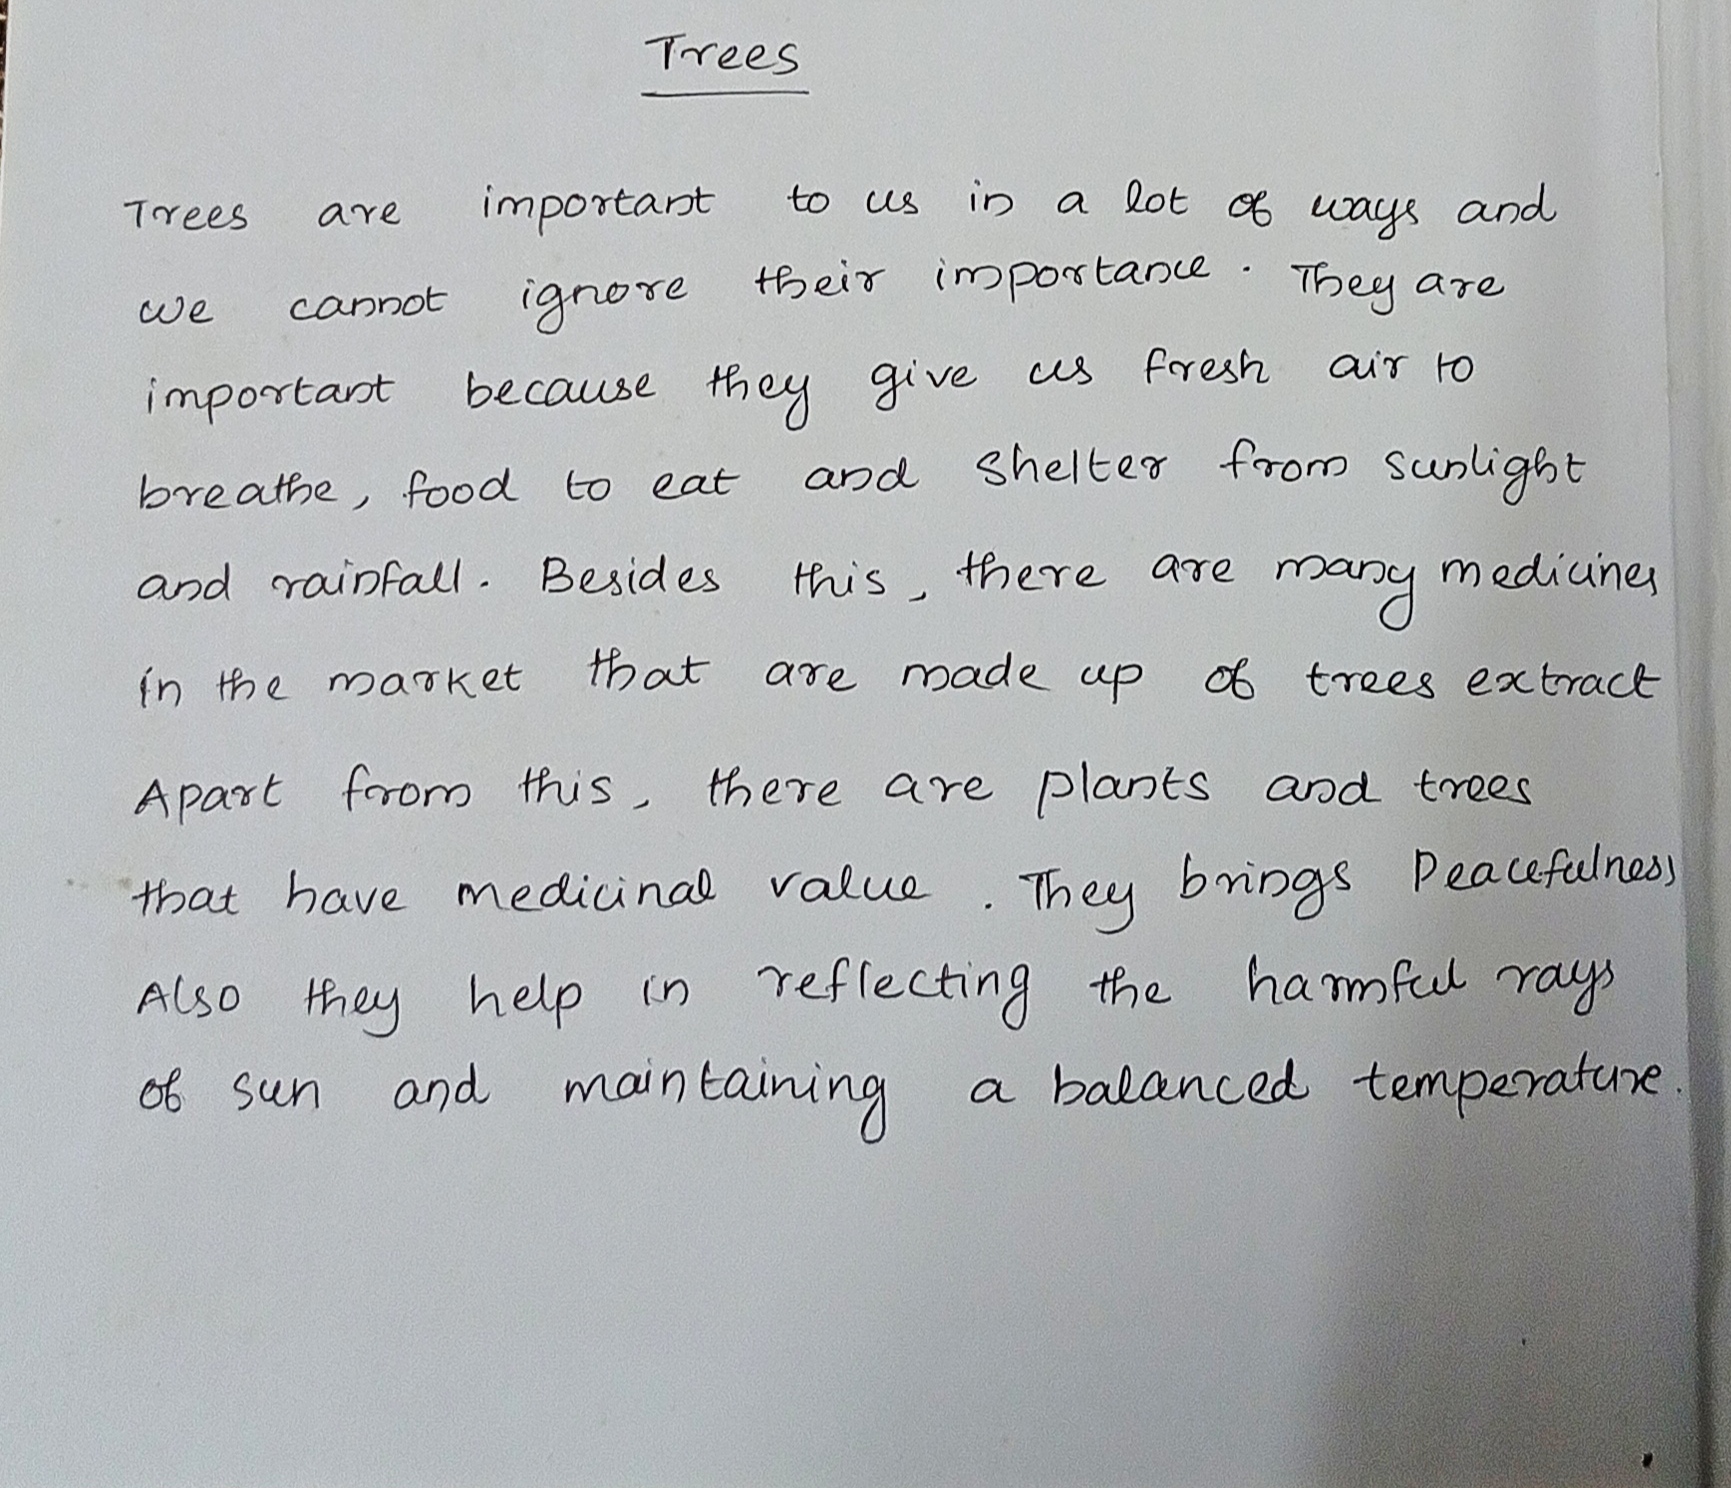 Trees
Trees are important to us in a lot of ways and
we cannot ignore their importance. They are
important because they give us fresh air to
breathe, food to eat and shelter from sunlight
and rainfall. Besides this, there are many medicines
in the market that are made up of trees extract
Apart from this, there are plants and trees
that have medicinal value. They brings Peacefulness
Also they help in reflecting the harmful rays
of sun and maintaining a balanced temperature.